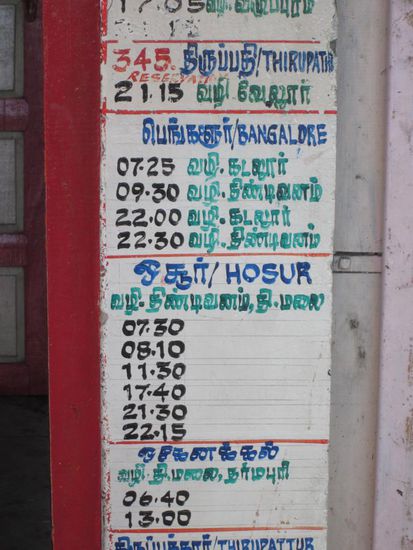 17.05 வழி. விழுப்புரம்
345. திருப்பதி/THIRUPATHI
RESERVATION
21.15 வழி வேலூர்
பெங்களூர்/BANGALORE
07.25 வழி. கடலூர்
09.30 வழி. திண்டிவனம்
22.00 வழி. கடலூர்
22.30 வழி. திண்டிவனம்
ஓசூர்/HOSUR
வழி. திண்டிவனம், தி.மலை
07.30
08.10
11.30
17.40
21.30
22.15
ஒகேனக்கல்
வழி. தி.மலை, தர்மபுரி
06.40
13.00
திருப்பத்தூர்/THIRUPATTUR